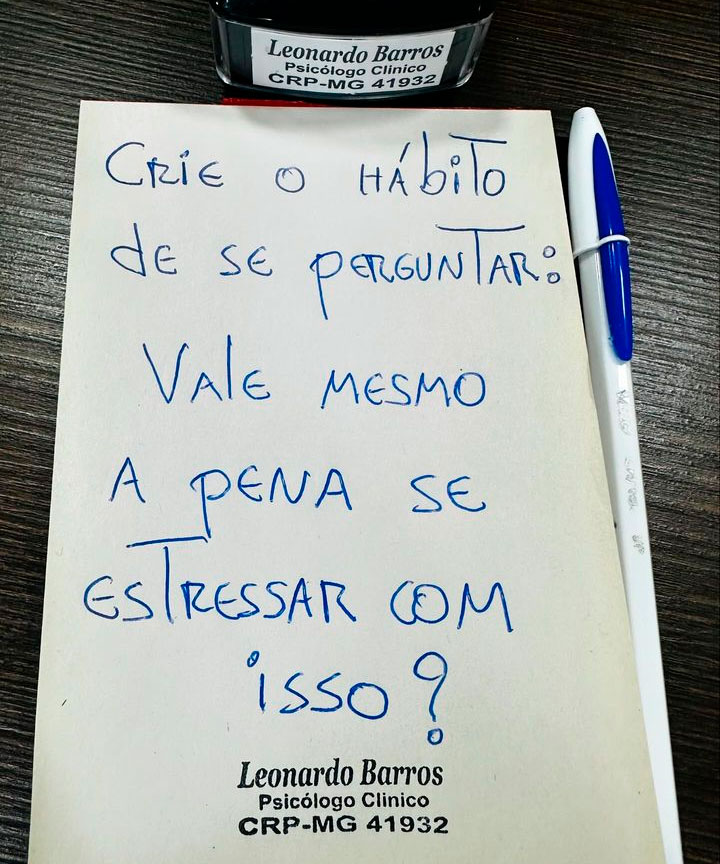 Leonardo Barros
Psicólogo Clinico
CRP-MG 41932
CRIE O HÁbiTO
dE SE pERGUNTAR:
VAlE MESMO
A pENA SE
ESTRESSAR COM
iSSO?
Leonardo Barros
Psicólogo Clinico
CRP-MG 41932